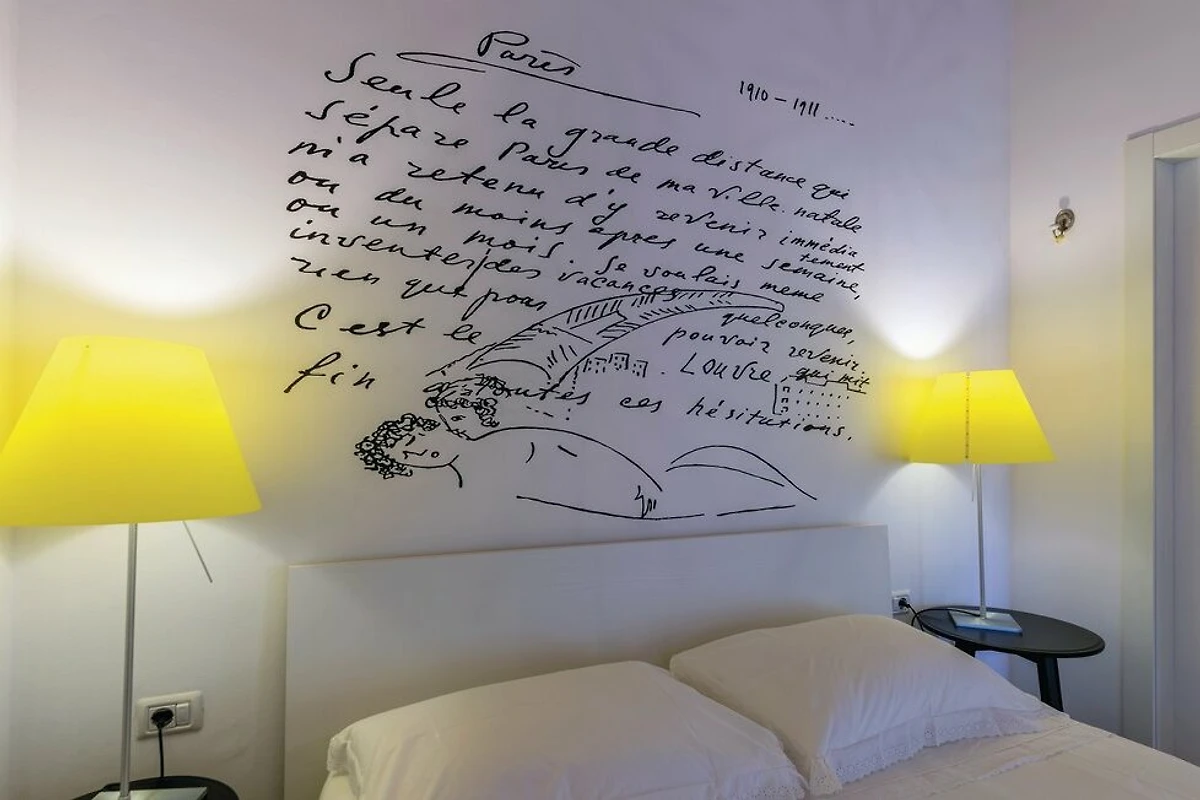 Paris
1910 – 1911 .....
Seule la grande distance qui
sépare Paris de ma ville natale
m'a retenu d'y revenir immédia
tement
ou du moins apres une semaine,
ou un mois. Je voulais meme
inventer des vacances quelconques,
rien que pour pouvoir revenir.
C'est le Louvre, qui mit
fin a toutes ces hésitations.